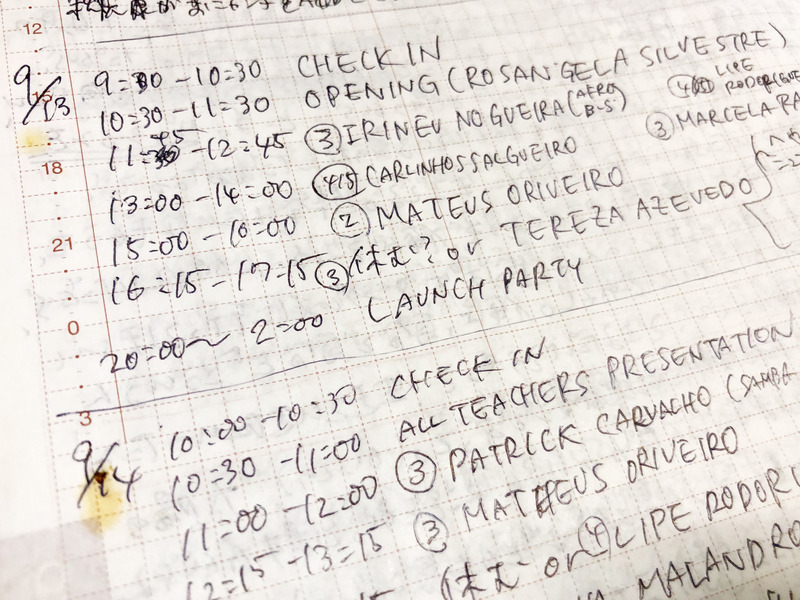 12
9/13 9=30 -10=30 CHECK IN
10=30 -11=30 OPENING (ROSANGELA SILVESTRE)
11=45 -12=45 ③ IRINEU NOGUEIRA (AFRO B-S) ④ LIPE
③ MARCELA
18
13=00 -14=00 4/5 CARLINHOS SALGUEIRO
15=00 -16=00 ② MATEUS ORIVEIRO
21
16=15 -17=15 ③ 休む? or TEREZA AZEVEDO
0
20=00~ 2=00 LAUNCH PARTY
3
9/14 10:00 -10=30 CHECK IN
10=30 -11=00 ALL TEACHERS PRESENTATION
11=00 -12=00 ③ PATRICK CARVACHO (SAMBA
12=15 -13=15 ③ MATHEUS ORIVEIRO
休む or ④ LIPE RODORI
MALANDRO